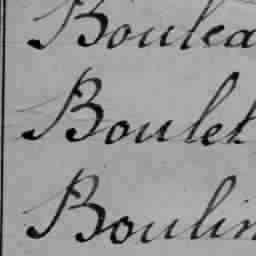 Boulea
Boulet
Boulin